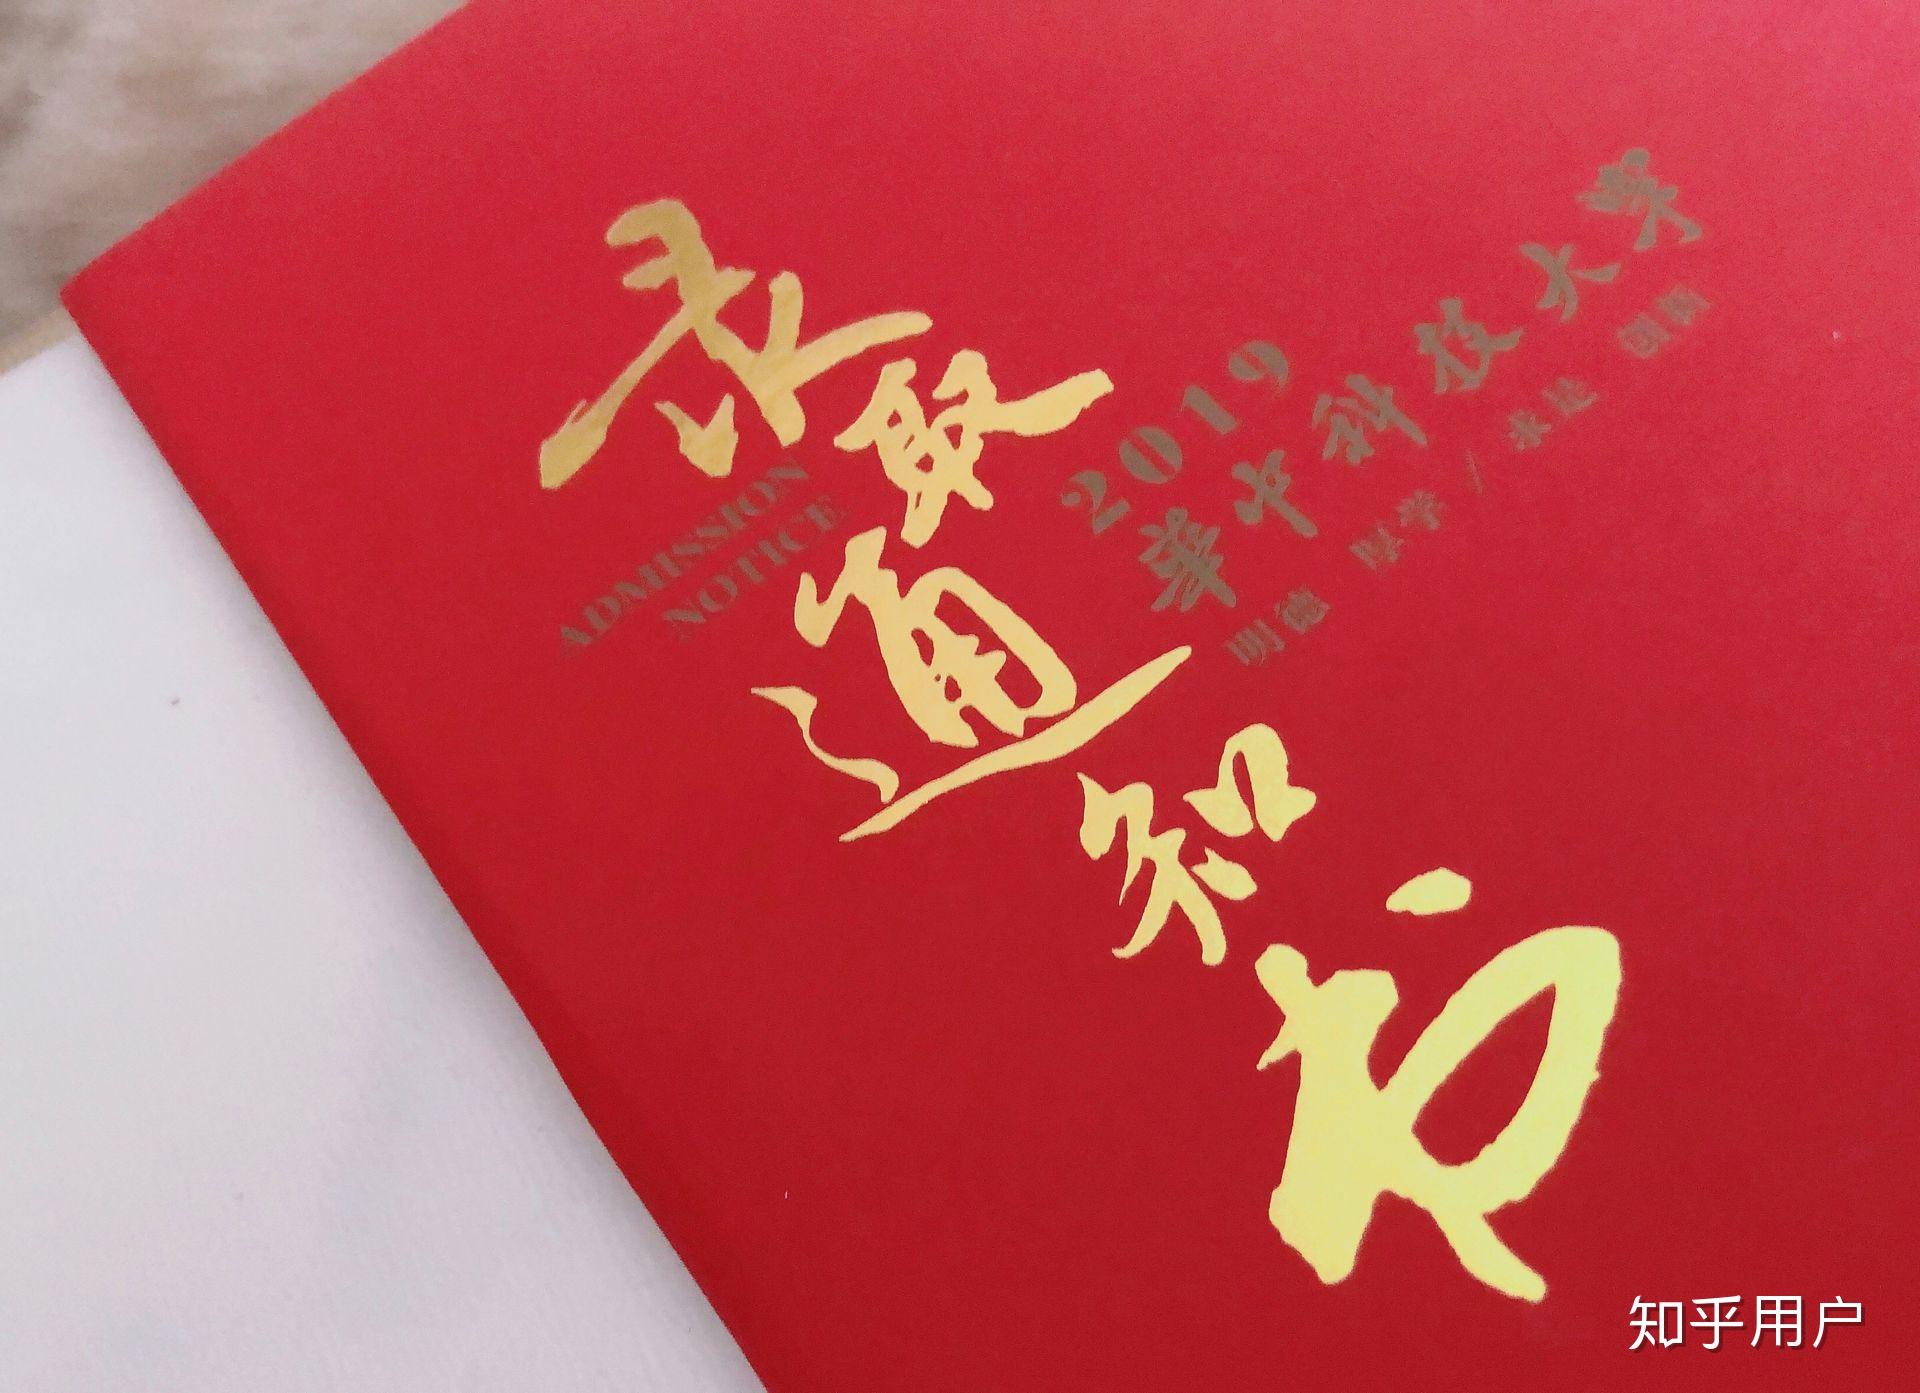 录取通知书
ADMISSION
NOTICE
2019
华中科技大学
明德 厚学 / 求是 创新
知乎用户